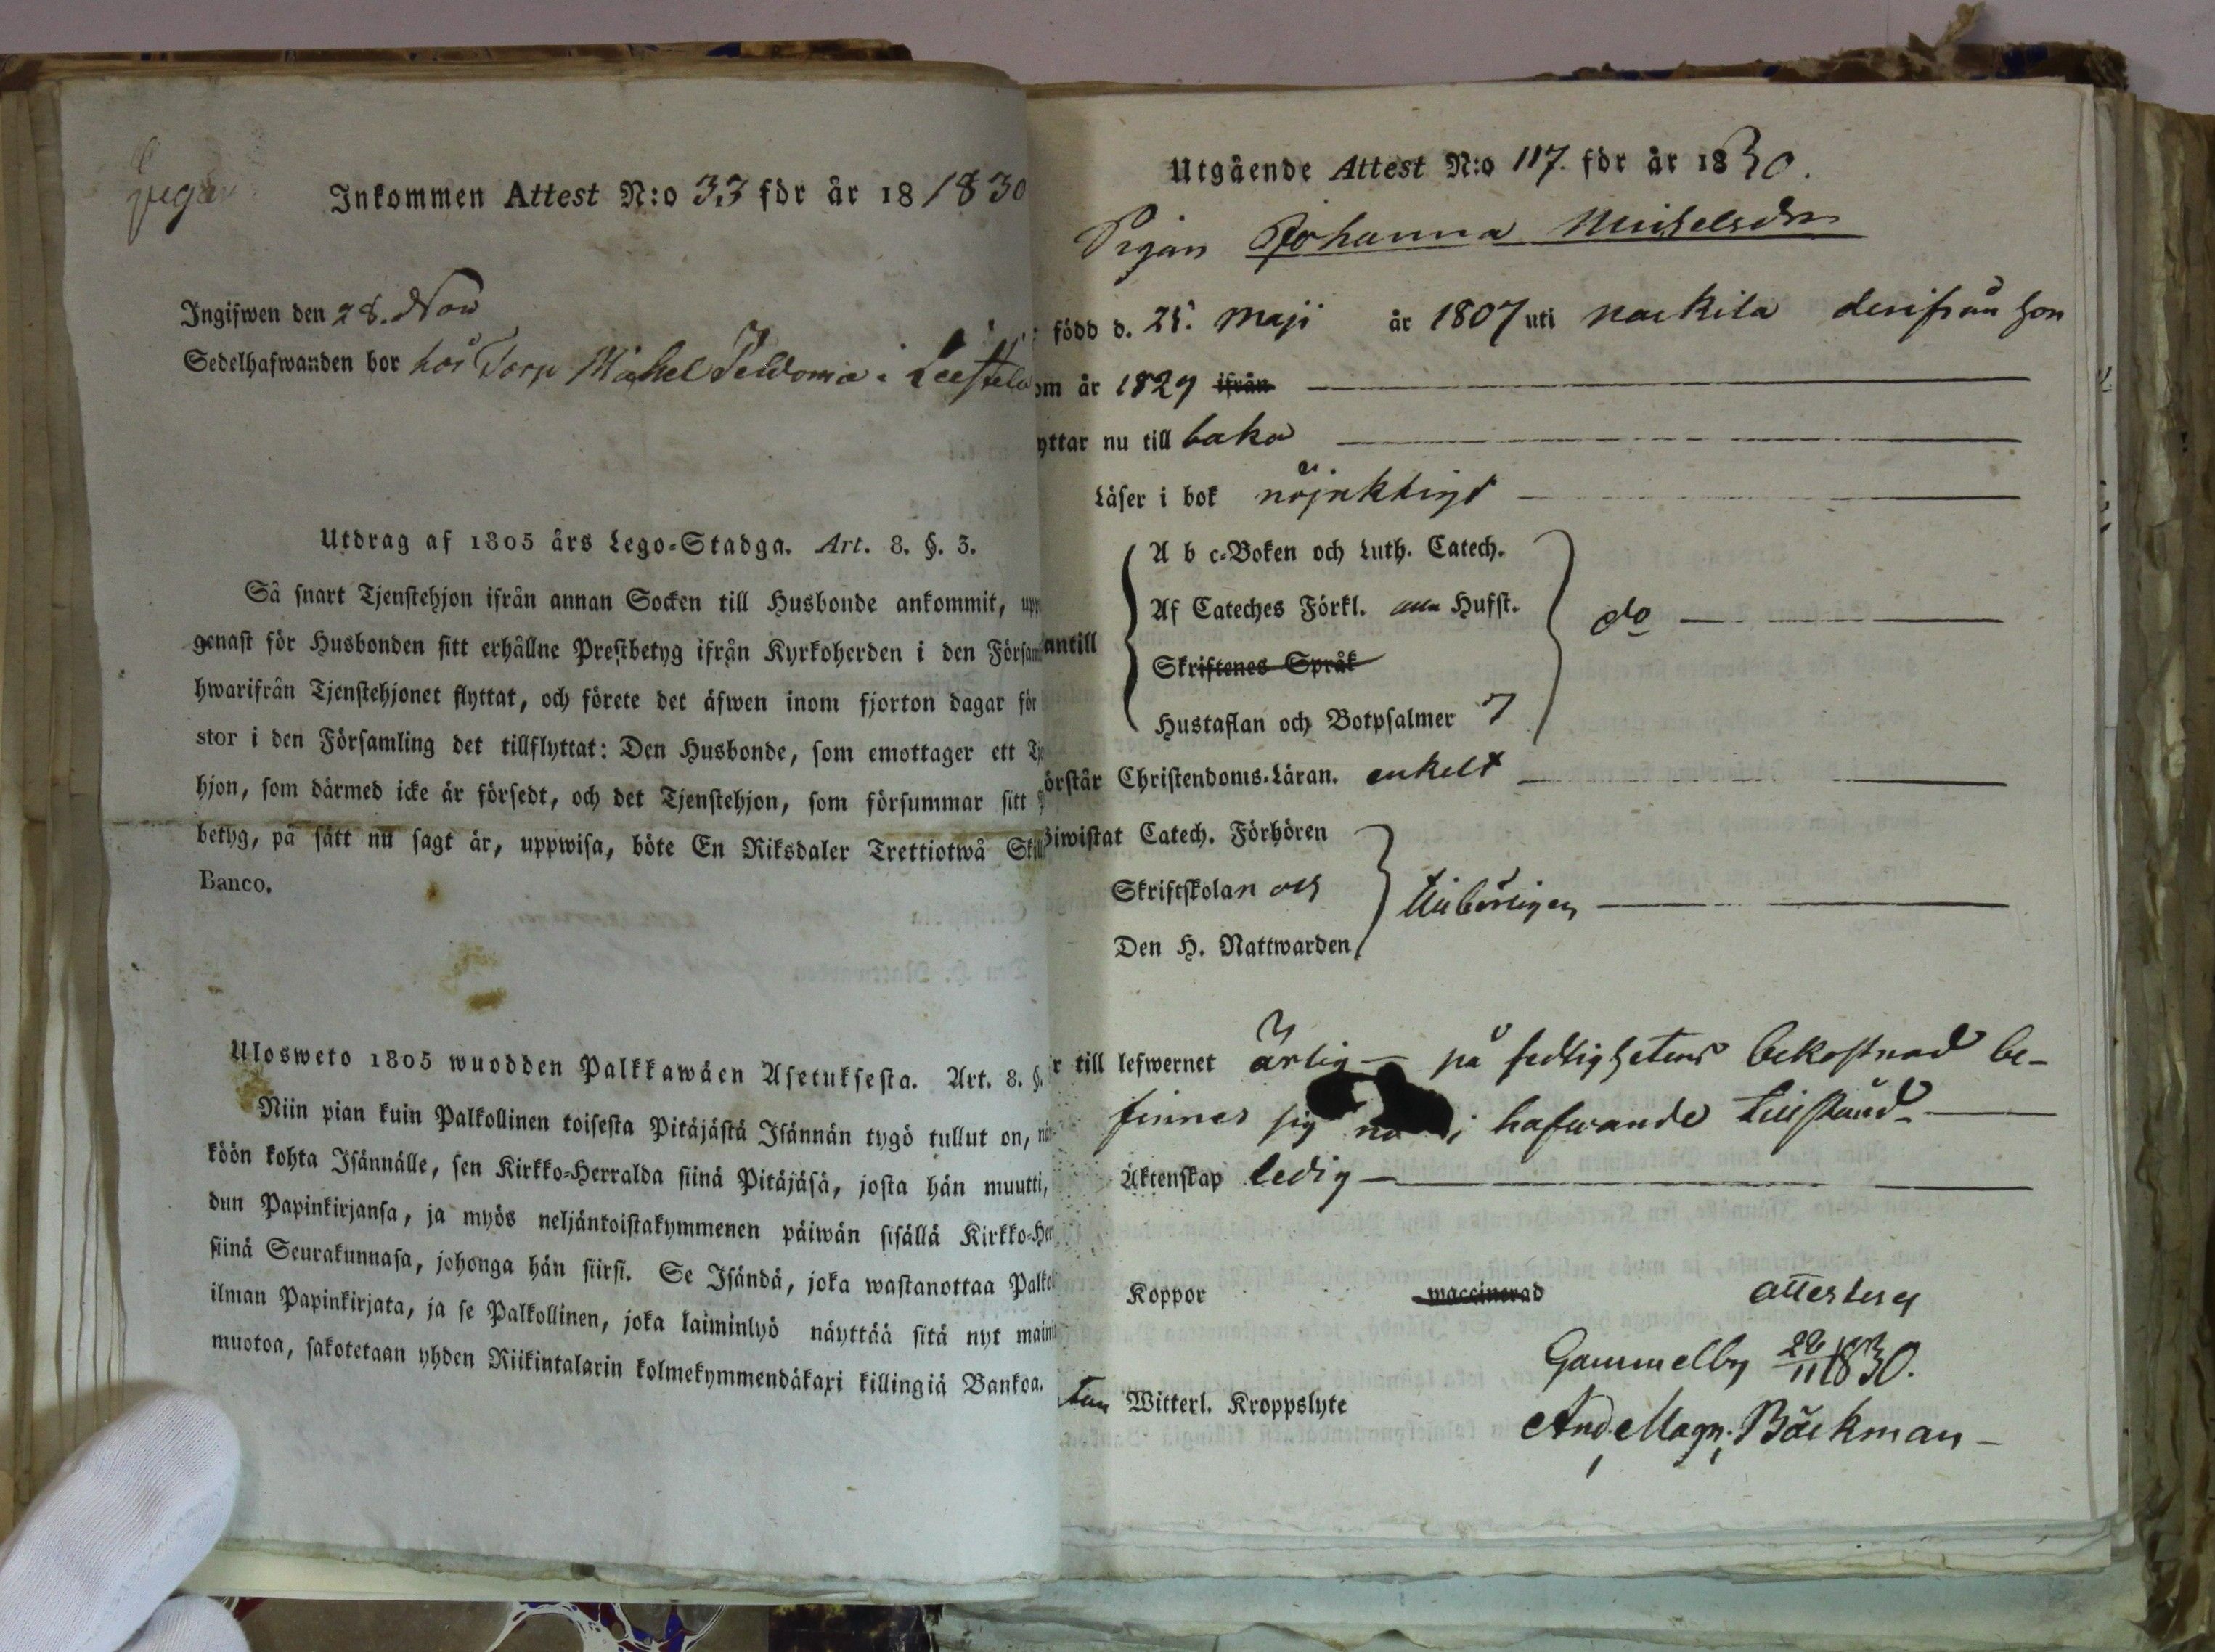 Inkommen Attest N:o 33 för år 18 1830
Ingifwen den 28. Nov
Sedelhafwanden bor hos Torp Michel i
Utdrag af 1805 års Lego-Stadga. Art. 8. §. 3.
Så snart Tjenstehjon ifrån annan Socken till Husbonde ankommit, upp
genast för Husbonden sitt erhållne Prestbetyg ifrån Kyrkoherden i den Försam
hwarifrån Tjenstehjonet flyttat, och förete det äfwen inom fjorton dagar för
stor i den Församling det tillflyttat: Den Husbonde, som emottager ett Tje
hjon, som därmed icke är försedt, och det Tjenstehjon, som försummar sitt
betyg, på sätt nu sagt är, uppwisa, böte En Riksdaler Trettiotwå Skill
Banco.
Ulosweto 1805 wuodden Palkkawäen Asetuksesta. Art. 8. §.
Niin pian kuin Palkollinen toisesta Pitäjästä Isännän tygö tullut on, nä
köön kohta Isännälle, sen Kirkko-Herralda siinä Pitäjäsä, josta hän muutti,
dun Papinkirjansa, ja myös neljäntoistakymmenen päiwän sisällä Kirkko-Her
siinä Seurakunnasa, johonga hän siirsi. Se Isändä, joka wastanottaa Palkol
ilman Papinkirjata, ja se Palkollinen, joka laiminlyö näyttää sitä nyt main
muotoa, sakotetaan yhden Riikintalarin kolmekymmendäkaxi killingiä Bankoa.
Utgående Attest N:o 117. för år 1830.
Pigan Johanna Michelsdr
född d. 25. Maji år 1807 uti Nackila derifrån hon
om år 1829 ifrån
yttar nu till baka
Läser i bok nöjaktigt
A b c-Boken och Luth. Catech.
Af Cateches Förkl. Hufst.
antill
Skriftenes Språk
do
Hustaflan och Botpsalmer 7
örstår Christendoms-Läran. enkelt
Biwistat Catech. Förhören
Skriftskolan och
tillbörligen
Den H. Nattwarden
r till lefwernet ärlig på sedlighetens bekostnad be-
finner sig nu i hafwande tillstånd
Äktenskap ledig
Koppor waccinerad attesterar
Gammelby 22/11 1830.
utan Witterl. Kroppslyte
And. Magn. Bäckman